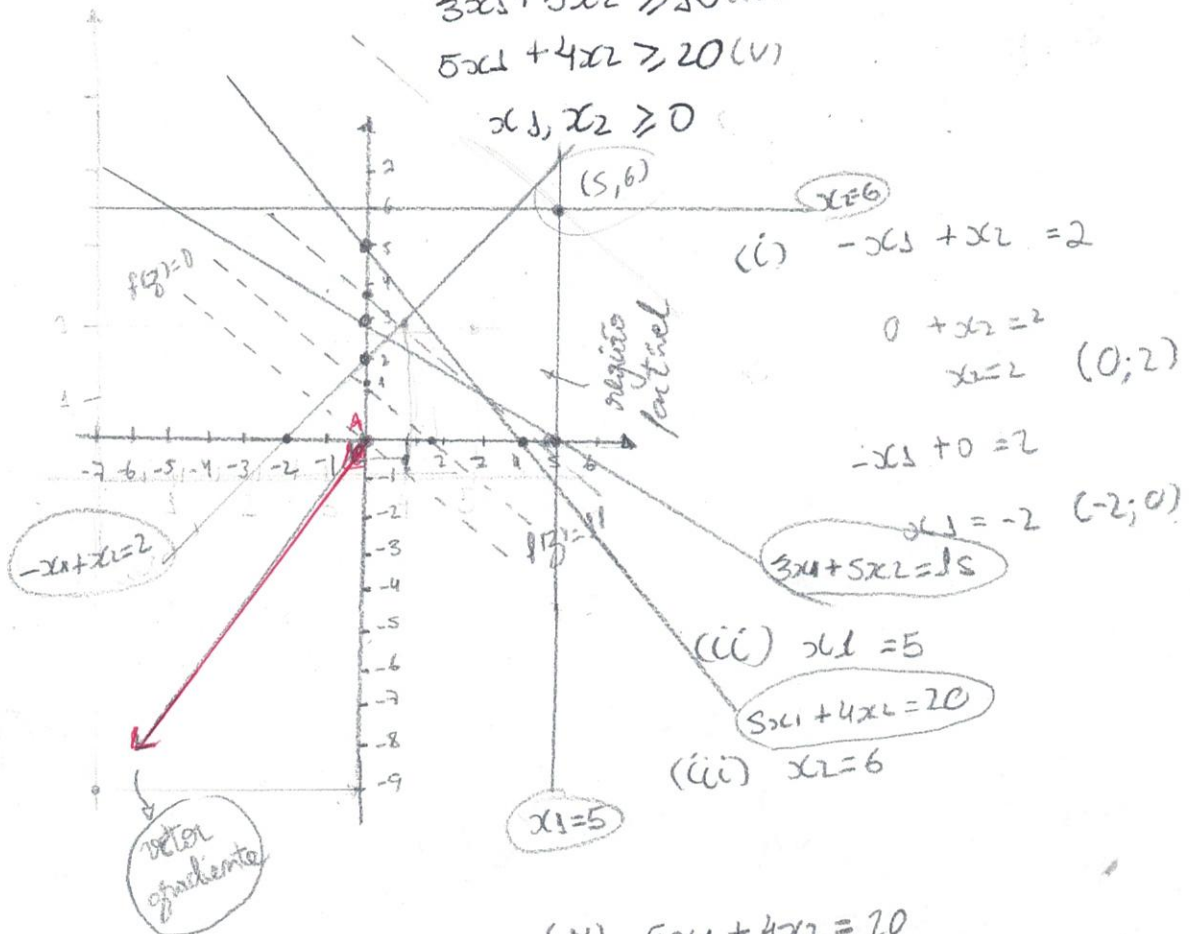 5x1 + 4x2 ≥ 20 (v)
x1, x2 ≥ 0
(5,6)
x2=6
(i) -x1 + x2 = 2
0 + x2 = 2
x2 = 2 (0;2)
-x1 + 0 = 2
x1 = -2 (-2;0)
f(z)=0
região
A
6
5
4
3
2
1
-7 -6 -5 -4 -3 -2 -1 2 4 5 6
-1
-2
-3
-4
-5
-6
-7
-8
-9
3
1
-x1+x2=2
3x1+5x2=15
(ii) x1 = 5
5x1+4x2=20
(iii) x2=6
x1=5
vetor
gradiente
5x1 + 4x2 = 20